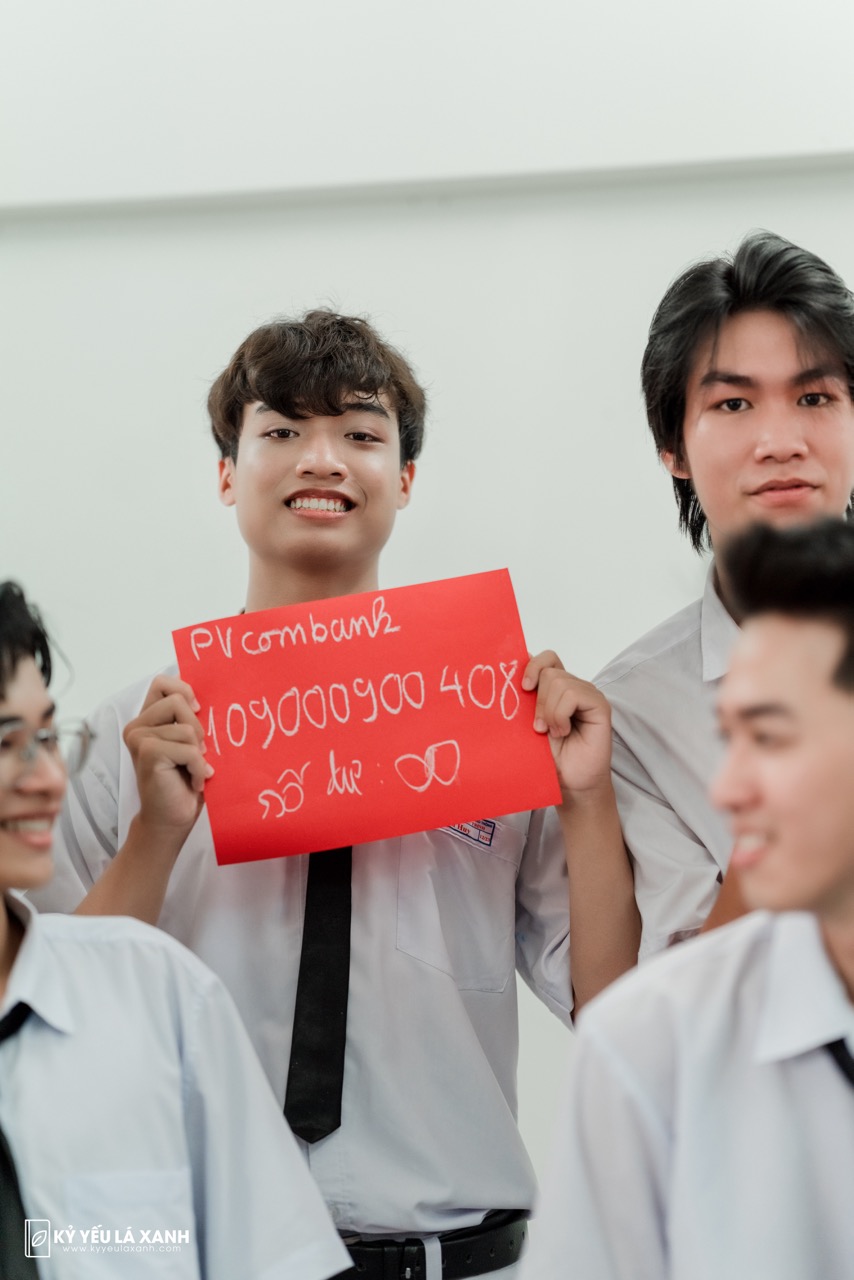 PVcombank
109000900 408
số dư : ∞
KỶ YẾU LÁ XANH
www.kyyeulaxanh.com